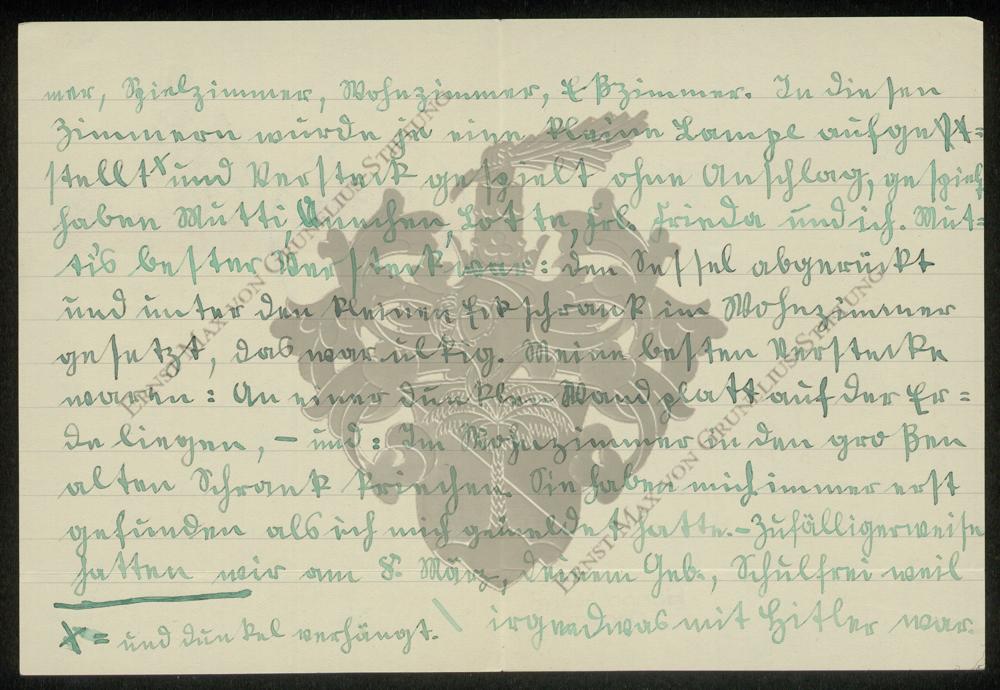 mer, Spielzimmer, Wohnzimmer, Eßzimmer. In diesen
Zimmern wurde je eine kleine Lampe aufgest=
stellt x und Versteck gespielt ohne Anschlag, gespielt
haben Mutti, Annchen, Lotte, Frl. Frieda und ich. Mut=
ti's bester Versteck war: den Sessel abgerückt
und unter den kleinen Eckschrank im Wohnzimmer
gesetzt, das war ulkig. Meine besten Verstecke
waren: An einer dunklen Wand platt auf der Er=
de liegen, – und: Im Wohnzimmer in den großen
alten Schrank kriechen. Sie haben mich immer erst
gefunden als ich mich gemeldet hatte. – Zufälligerweise
hatten wir am 8. März, Deinem Geb., Schulfrei weil
x = und dunkel verhängt. \ irgendwas mit Hitler war.
ERNST MAX VON GRUNELIUS-STIFTUNG
ERNST MAX VON GRUNELIUS-STIFTUNG